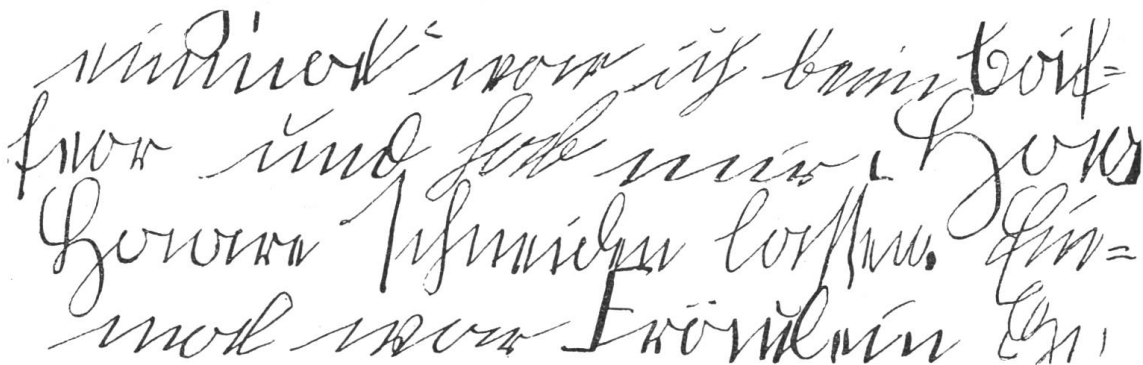 einmal war ich beim Coif=
und hab mir
Haare schneiden lassen. Ein=
mal war Fräulein